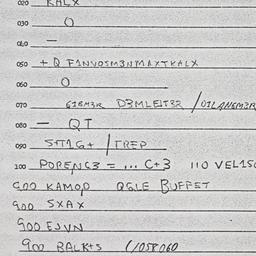 020 KALX
030 O
040 —
050 + Q F1NVOSM3NMAXTKALX
060 O
070 616M3R D3MLEIT3R /01LANGM3R
080 — QT
090 STT1G+ /TREP
100 PORENC3 = ... C+3 110 VEL15
900 KAMOP QGLE BUFFET
900 SXAX
900 EJVN
900 BALKTS 11058060